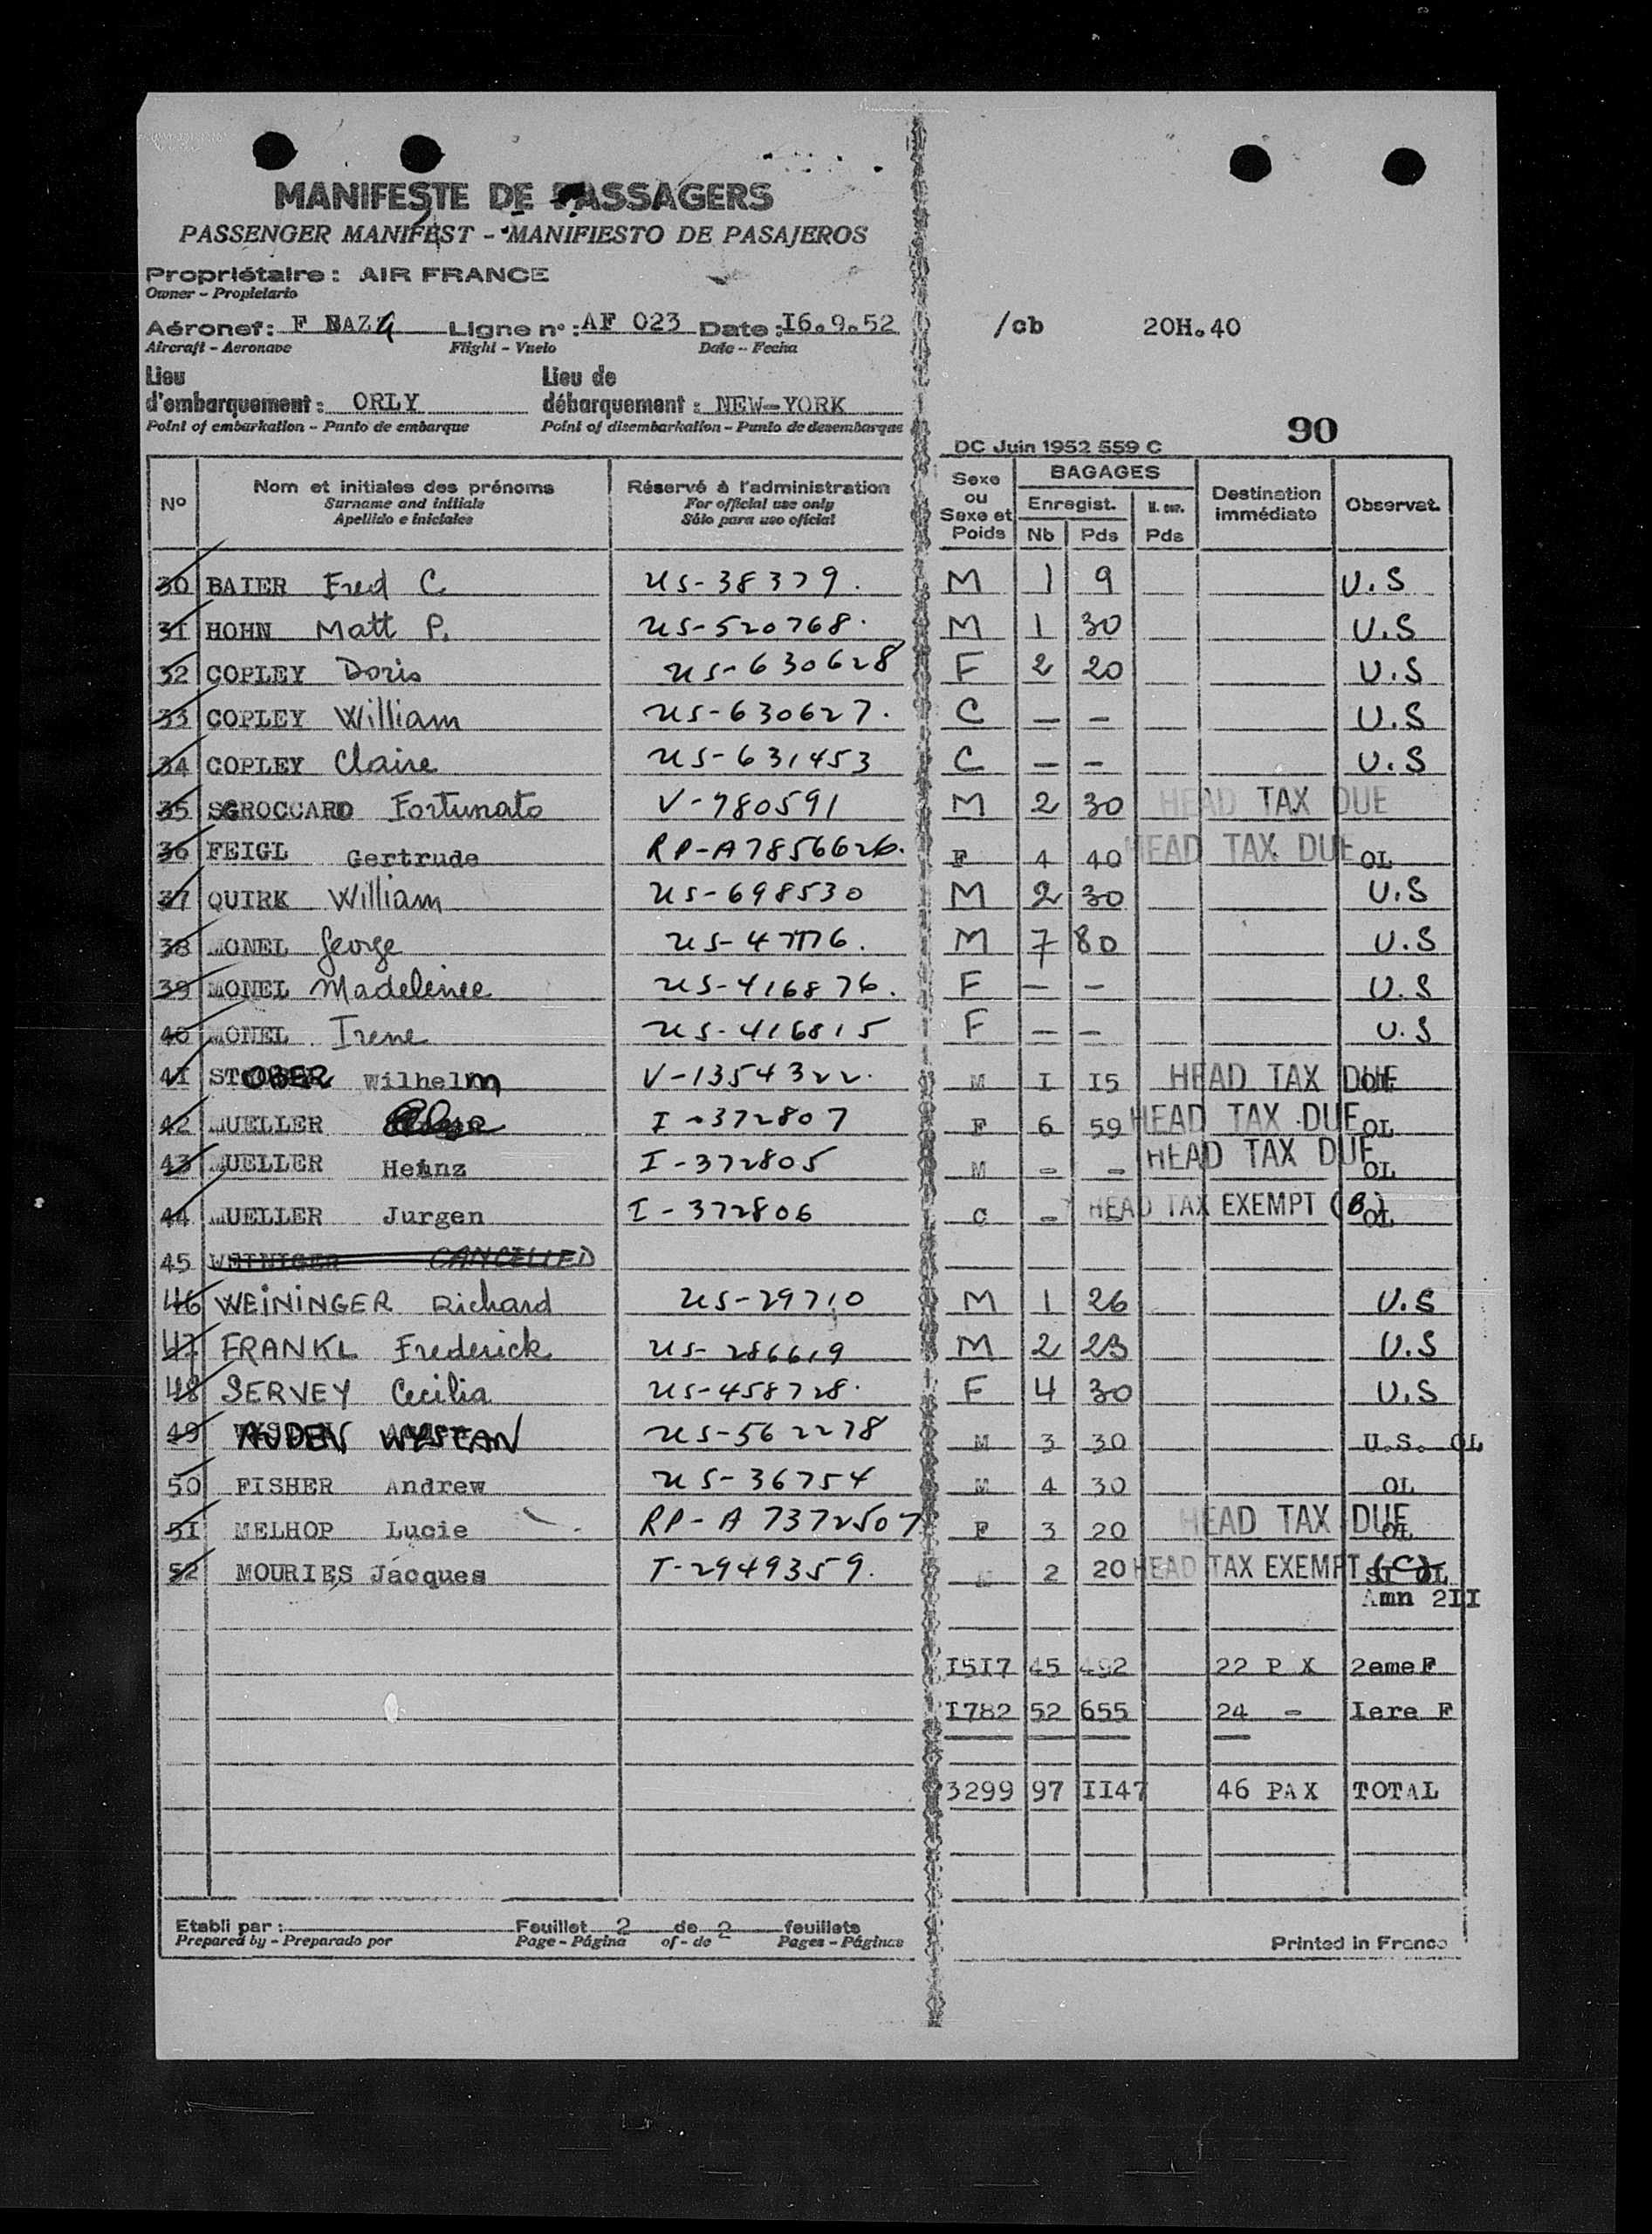 MANIFESTE DE PASSAGERS
PASSENGER MANIFEST - MANIFIESTO DE PASAJEROS
Propriétaire : AIR FRANCE
Owner - Propietario
Aéronef: F BAZ Ligne n° : AF 023 Date : I6.9.52 /cb 20H.40
Aircraft - Aeronave Flight - Vuelo Date - Fecha
Lieu Lieu de
d'embarquement : ORLY débarquement : NEW-YORK
Point of embarkation - Punto de embarque Point of disembarkation - Punto de desembarque
90
DC Juin 1952 559 C
Nº Nom et initiales des prénoms Réservé à l'administration Sexe ou Sexe et Poids BAGAGES Destination immédiate Observat.
Surname and initials For official use only Enregist.
Apellido e iniciales Sólo para uso oficial Nb Pds Pds
30 BAIER Fred C US-38379. M 1 9 U.S
31 HOHN Matt P. US-520768. M 1 30 U.S
32 COPLEY Doris US-630628 F 2 20 U.S
33 COPLEY William US-630627. C — — U.S
34 COPLEY Claire US-631453 C — — U.S
35 SGROCCARO Fortunato V-780591 M 2 30 HEAD TAX DUE
36 FEIGL Gertrude RP-A7856626. F 4 40 HEAD TAX DUE OL
37 QUIRK William US-698530 M 2 30 U.S
38 MONEL George M 7 80 U.S
39 MONEL Madeleinee US-416876. F — — U.S
40 MONEL Irene US-416815 F — — U.S
4I STOBER Wilhelm V-1354322. M I I5 HEAD TAX DUE
42 MUELLER I-372807 F 6 59 HEAD TAX DUE OL
43 MUELLER Heinz I-372805 M - - HEAD TAX DUE OL
44 MUELLER Jurgen I-372806 C - HEAD TAX EXEMPT (B) OL
45 WEINIGER CANCELLED
46 WEININGER Richard US-29710 M 1 26 U.S
47 FRANKL Frederick US-286619 M 2 23 U.S
48 SERVEY Cecilia US-458728. F 4 30 U.S
49 AUDEN WYSTAN US-562278 M 3 30 U.S. OL
50 FISHER Andrew US-36754 M 4 30 OL
5I MELHOP Lucie RP-A 7372507 F 3 20 HEAD TAX DUE OL
52 MOURIES Jacques T-2949359. M 2 20 HEAD TAX EXEMPT (C) OL
Amn 2II
I5I7 45 492 22 P X 2eme F
I782 52 655 24 - Iere F
3299 97 II47 46 PAX TOTAL
Etabli par : Feuillet 2 de 2 feuillets
Prepared by - Preparado por Page - Página of - de Pages - Páginas Printed in France